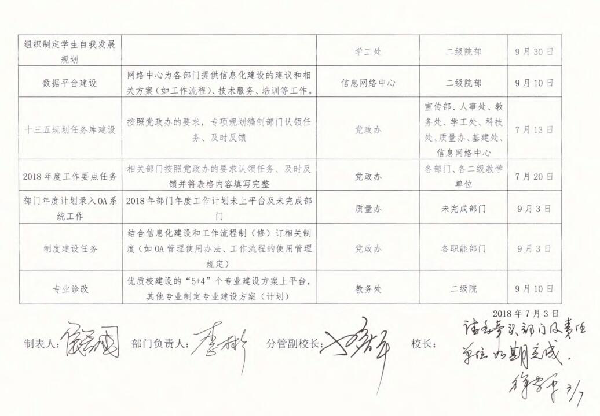 组织制定学生自我发展规划 学工处 二级院部 9月30日
数据平台建设 网络中心为各部门提供信息化建设的建议和相关方案（如工作流程）、技术服务、培训等工作。 信息网络中心 二级院部 9月10日
十三五规划任务库建设 按照党政办的要求，专项规划编制部门认领任务、及时反馈 党政办 宣传部、人事处、教务处、学工处、科技处、质量办、基建处、信息网络中心 7月13日
2018年度工作要点任务 相关部门按照党政办的要求认领任务、及时反馈并将表格内容填写完整 党政办 各部门、各二级教学单位 7月20日
部门年度计划录入OA系统工作 2018年部门年度工作计划未上平台及未完成部门 质量办 未完成部门 9月3日
制度建设任务 结合信息化建设和工作流程制（修）订相关制度（如OA管理使用办法、工作流程的使用管理规定） 党政办 各职能部门 9月3日
专业诊改 优质校建设的“5+4”个专业建设方案上平台，其他专业制定专业建设方案（计划） 教务处 二级院 9月10日
2018年7月3日
制表人： 部门负责人：李彬 分管副校长： 校长：
请各牵头部门及责任
单位如期完成.
3/7